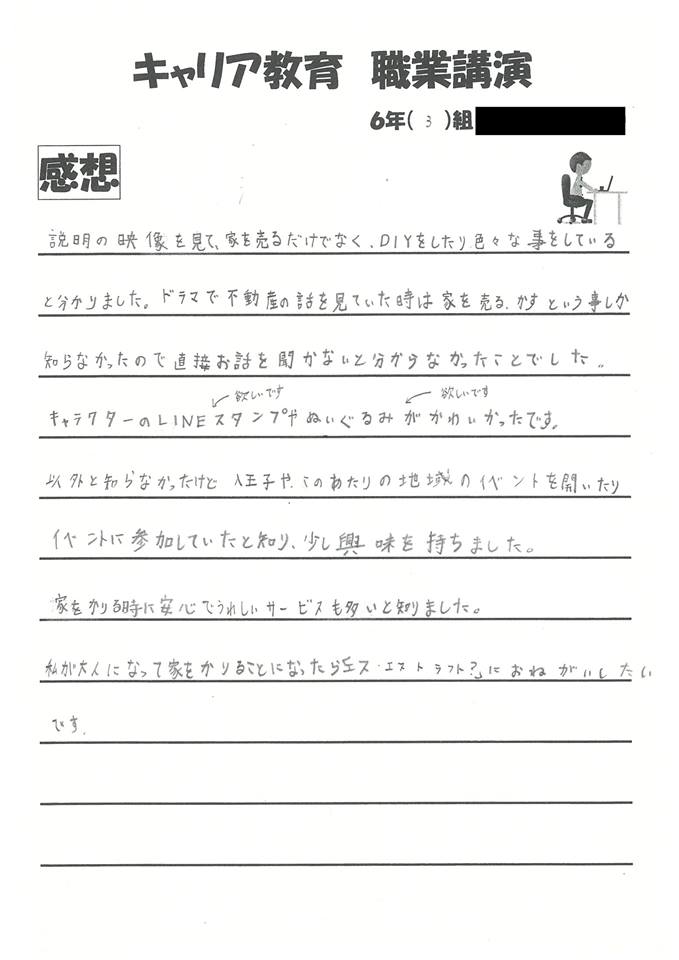 キャリア教育　職業講演
6年( 3 )組
感想
説明の映像を見て、家を売るだけでなく、DIYをしたり色々な事をしている
と分かりました。ドラマで不動産の話を見ていた時は家を売る、かすという事しか
知らなかったので直接お話を聞かないと分からなかったことでした。
欲しいです　欲しいです
キャラクターのLINEスタンプやぬいぐるみがかわいかったです。
以外と知らなかったけど八王子や、このあたりの地域のイベントを開いたり
イベントに参加していたと知り、少し興味を持ちました。
家をかりる時に安心でうれしいサービスも多いと知りました。
私が大人になって家をかりることになったら「エス・エストラフト?」におねがいしたい
です。